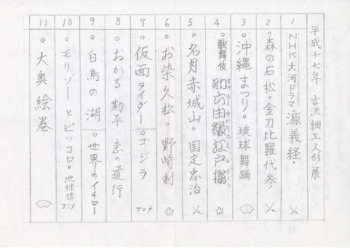 平成十七年 吉沢細工人形展
1 NHK大河ドラマ 源義経
2 森の石松 金刀比羅代参
3 沖縄まつり 琉球舞踊
4 歌舞伎
5 名月赤城山 国定忠治
6 お染久松 野崎村
7 仮面ライダー ゴジラ アニメ
8 おかる 勘平 恋の道行
9 白鳥の湖 世界のイチロー
10 モリゾーとピッコロ 地球博 アニメ
11 大奥絵巻